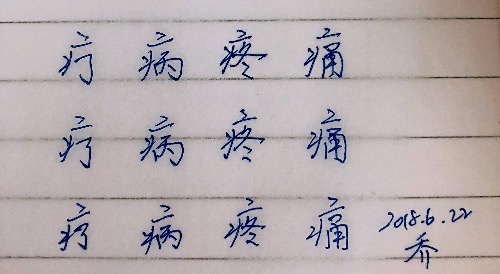 疗 病 疼 痛
疗 病 疼 痛
疗 病 疼 痛
2018.6.22
乔